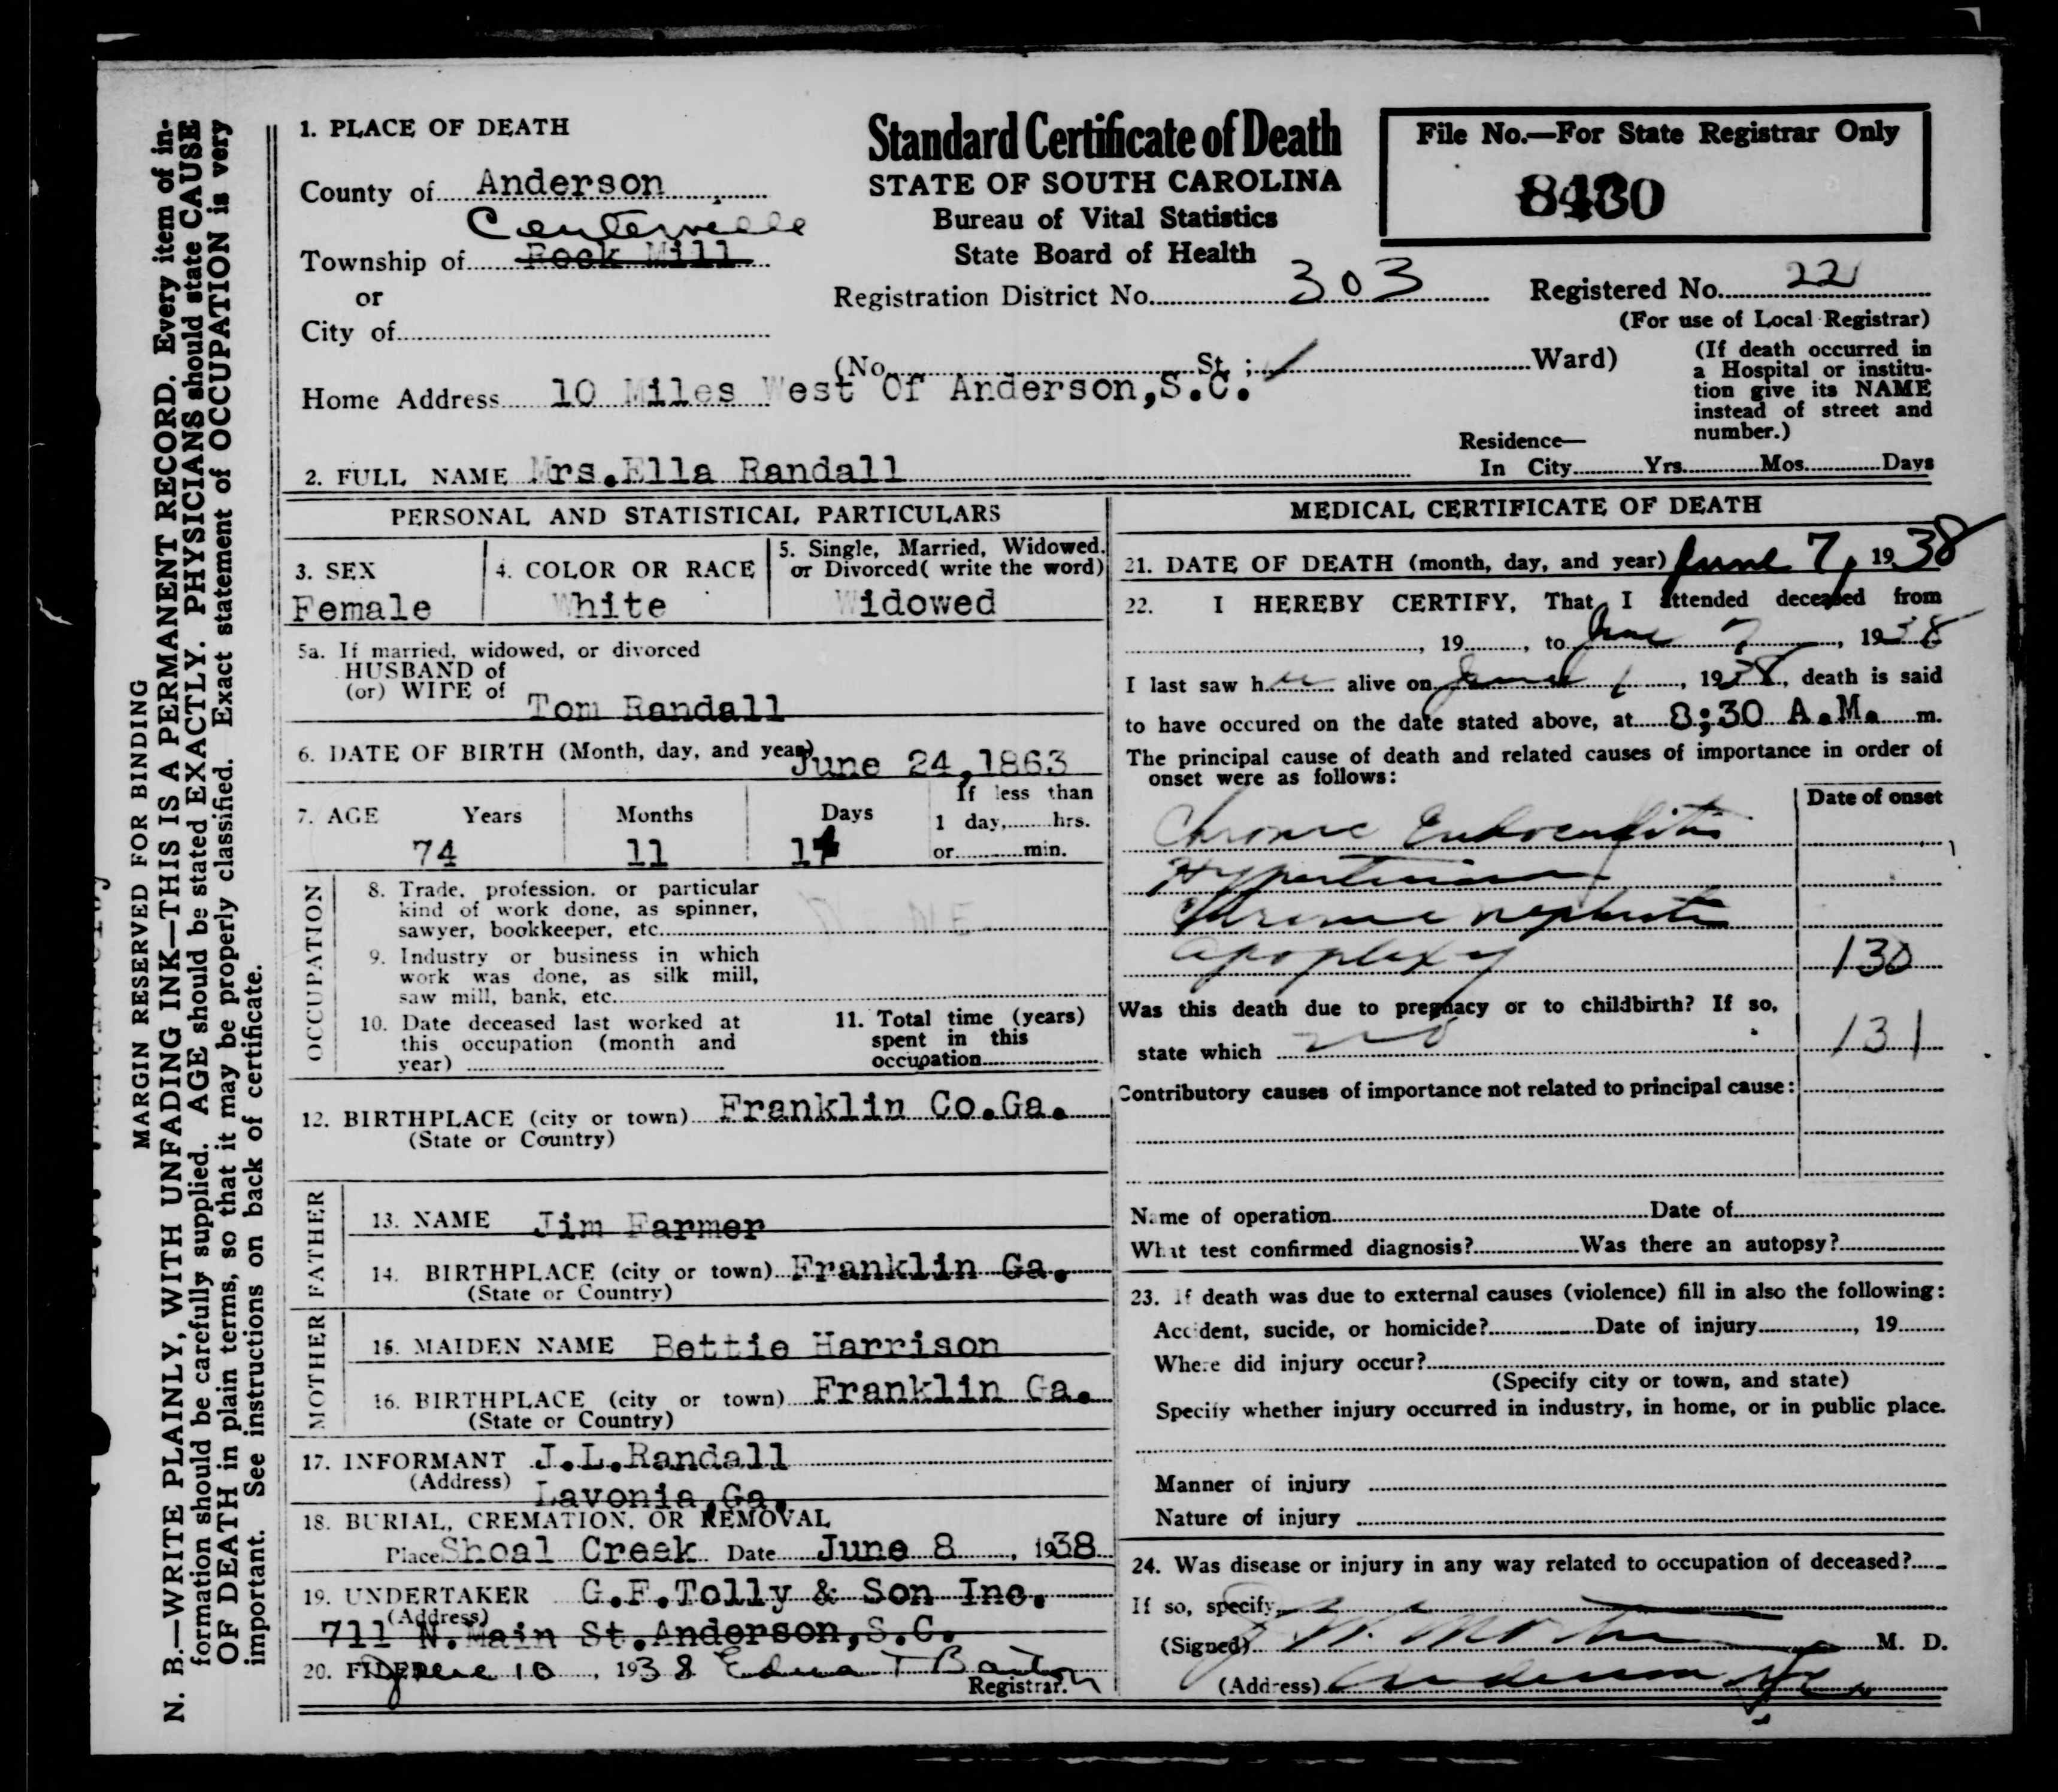 MARGIN RESERVED FOR BINDING
N. B.—WRITE PLAINLY, WITH UNFADING INK—THIS IS A PERMANENT RECORD. Every item of in-
formation should be carefully supplied. AGE should be stated EXACTLY. PHYSICIANS should state CAUSE
OF DEATH in plain terms, so that it may be properly classified. Exact statement of OCCUPATION is very
important. See instructions on back of certificate.
1. PLACE OF DEATH
County of Anderson
Centerville
Township of Rock Mill
or
City of
Standard Certificate of Death
STATE OF SOUTH CAROLINA
Bureau of Vital Statistics
State Board of Health
File No.—For State Registrar Only
Registration District No. 303
Registered No. 22
(For use of Local Registrar)
(No. St.; Ward)
(If death occurred in
a Hospital or institu-
tion give its NAME
instead of street and
number.)
Home Address 10 Miles West Of Anderson,S.C.
Residence—
In City Yrs. Mos. Days
2. FULL NAME Mrs.Ella Randall
PERSONAL AND STATISTICAL PARTICULARS
3. SEX
Female
4. COLOR OR RACE
White
5. Single, Married, Widowed,
or Divorced( write the word)
Widowed
5a. If married, widowed, or divorced
HUSBAND of
(or) WIFE of
Tom Randall
6. DATE OF BIRTH (Month, day, and year) June 24,1863
7. AGE Years Months Days
74 11
If less than
1 day, hrs.
or min.
OCCUPATION
8. Trade, profession, or particular
kind of work done, as spinner,
sawyer, bookkeeper, etc.
9. Industry or business in which
work was done, as silk mill,
saw mill, bank, etc.
10. Date deceased last worked at
this occupation (month and
year)
11. Total time (years)
spent in this
occupation
12. BIRTHPLACE (city or town) Franklin Co.Ga.
(State or Country)
FATHER
13. NAME Jim Farmer
14. BIRTHPLACE (city or town) Franklin Ga.
(State or Country)
MOTHER
15. MAIDEN NAME Bettie Harrison
16. BIRTHPLACE (city or town) Franklin Ga.
(State or Country)
17. INFORMANT J.L.Randall
(Address) Lavonia,Ga.
18. BURIAL, CREMATION, OR REMOVAL
Place Shoal Creek Date June 8, 1938
19. UNDERTAKER G.F.Tolly & Son Inc.
(Address)
711 N.Main St.Anderson,S.C.
20. FILED June 10, 1938 Edna T Barton
Registrar.
MEDICAL CERTIFICATE OF DEATH
21. DATE OF DEATH (month, day, and year) June 7, 1938
22. I HEREBY CERTIFY, That I attended deceased from
, 19 , to June 7, 1938
I last saw her alive on June , 1938, death is said
to have occured on the date stated above, at 8;30 A.M. m.
The principal cause of death and related causes of importance in order of
onset were as follows:
Date of onset
Chronic Endocarditis
Hypertension
Chronic nephritis
apoplexy 130
Was this death due to pregnacy or to childbirth? If so,
state which no 131
Contributory causes of importance not related to principal cause:
Name of operation Date of
What test confirmed diagnosis? Was there an autopsy?
23. If death was due to external causes (violence) fill in also the following:
Accident, sucide, or homicide? Date of injury , 19
Where did injury occur?
(Specify city or town, and state)
Specify whether injury occurred in industry, in home, or in public place.
Manner of injury
Nature of injury
24. Was disease or injury in any way related to occupation of deceased?
If so, specify
(Signed) M. D.
(Address) Anderson S.C.